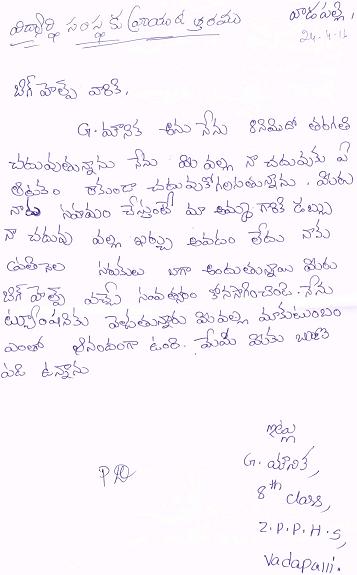 విద్యార్థి సంస్థకు వ్రాయండి ఉత్తరము
వాడపల్లి,
24-4-16
బిగ్ హెల్ప్ వారికి,
G. మౌనిక అను నేను 8 తరగతి
చదువుతున్నాను నేను మీ వల్ల నా చదువుకు ఏ
ఆటంకం రాకుండా చదువుకోగలుగుతున్నాను. మీరు
నాకు సహాయం చేస్తుంటే మా అమ్మ గారికి డబ్బు
నా చదువు వల్ల ఖర్చు అవడం లేదు నాకు
ప్రతినెల సరుకులు బాగా అందుతున్నాయి మీరు
బిగ్ హెల్ప్ వచ్చే సంవత్సరం కొనసాగించండి. నేను
ట్యూషనుకు వెళుతున్నాను మీ వల్ల మా కుటుంబం
ఎంతో ఆనందంగా ఉంది. మేము మీకు ఋణ
పడి ఉన్నాను
ఇట్లు
G. మౌనిక,
8th class,
Z.P.P.H.S,
Vadapalli.